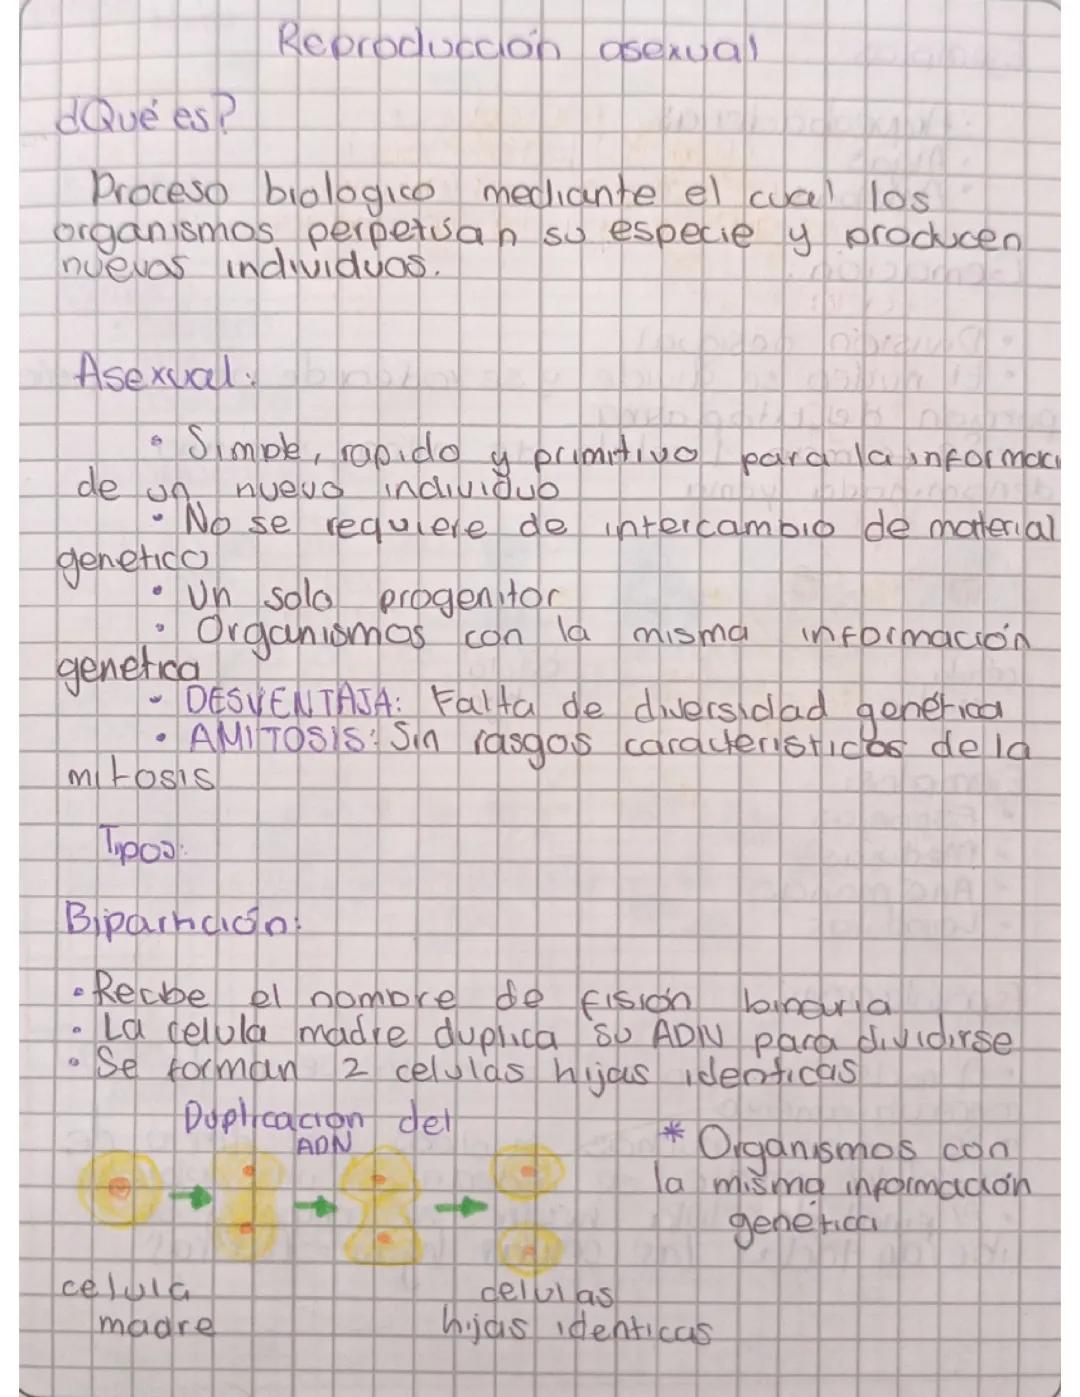 Reproducción asexual
¿Qué es?
Proceso biologico mediante el cual los
organismos perpetúan su especie y producen
nuevos individuos.
Asexual:
• Simple, rapido y primitivo para la informaci
de un nuevo individuo
• No se requiere de intercambio de material
genetico
• Un solo progenitor
• Organismos con la misma información
genetica
• DESVENTAJA: Falta de diversidad genética
• AMITOSIS: Sin rasgos caracteristicos de la
mitosis
Tipos:
Bipartición:
• Recibe el nombre de fisión binaria
• La celula madre duplica su ADN para dividirse
• Se forman 2 celulas hijas identicas
Duplicacion del
ADN
* Organismos con
la misma información
genética
celula
madre
celulas
hijas identicas